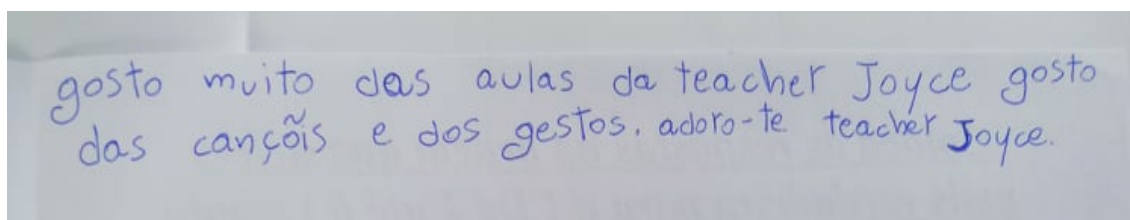 gosto muito das aulas da teacher Joyce gosto
das cançõis e dos gestos. adoro-te teacher Joyce.